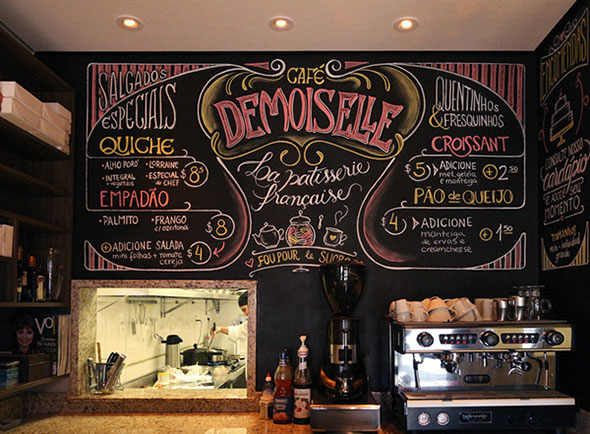 SALGADOS
ESPECIAIS
QUICHE
• ALHO PORÓ
• INTEGRAL
+ vegetais
• LORRAINE
• ESPECIAL
do CHEF
$8,5
EMPADÃO
• PALMITO
• FRANGO
c/ azeitona
$8
+ ADICIONE SALADA
mini folhas + tomate
cereja
$4
CAFÉ
DEMOISELLE
La patisserie
française
FOU POUR le SUCRE
QUENTINHOS
& FRESQUINHOS
CROISSANT
$5
ADICIONE
mel, geleia
e manteiga
+ 2,50
PÃO de QUEIJO
$4
ADICIONE
manteiga
de ervas e
creamcheese
+ 1,50
ENCOMENDAS
CONSULTE
NOSSO
cardápio
MOMENTO